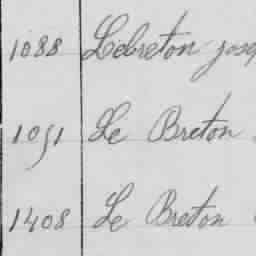 1088 Lebreton Jose
1091 Le Breton
1408 Le Breton